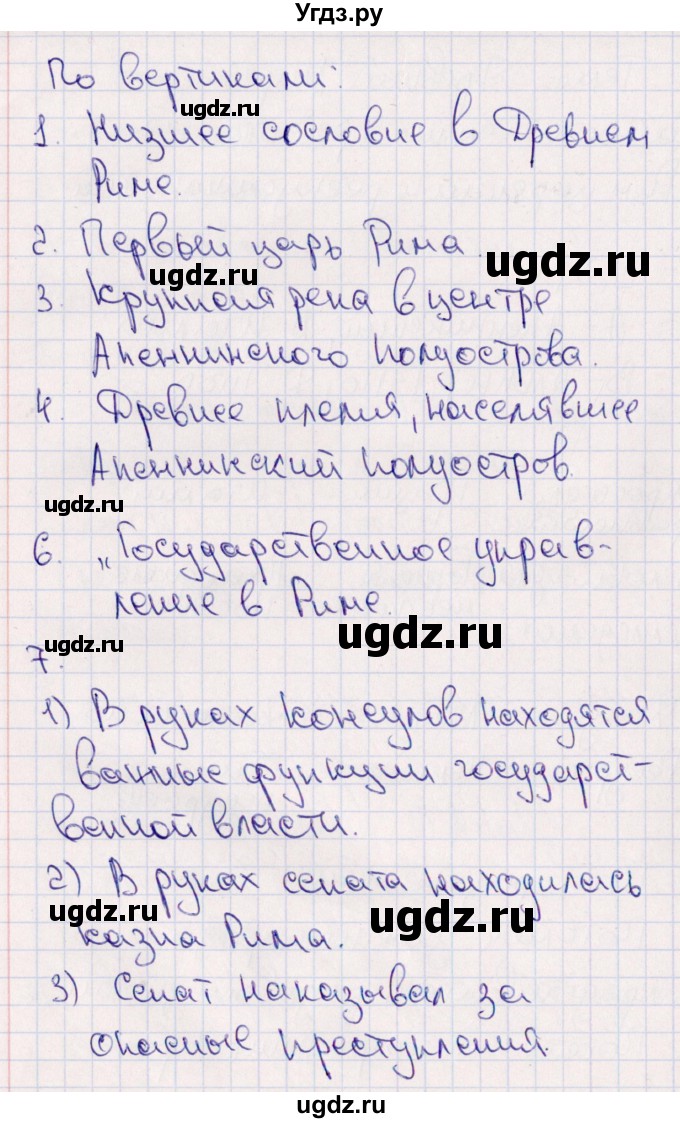 Угдз.ру
По вертикали:
ugdz.ru
1. Низшее сословие в Древнем
Риме.
2. Первый царь Рима.
ugdz.ru
ugdz.ru
3. Крупная река в центре
Апеннинского полуострова.
4. Древнее племя, населявшее
Апеннинский полуостров.
ugdz.ru
6. „Государственное управ-
ление в Риме.
ugdz.ru
ugdz.ru
7.
1) В руках консулов находятся
важные функции государст-
венной власти.
2) В руках сената находилась
ugdz.ru
ugdz.ru
казна Рима.
3) Сенат наказывал за
опасные преступления.
ugdz.ru